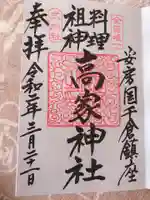 安房国千倉鎮座
料理
祖神
高家神社
奉拝
令和二年三月二十一日